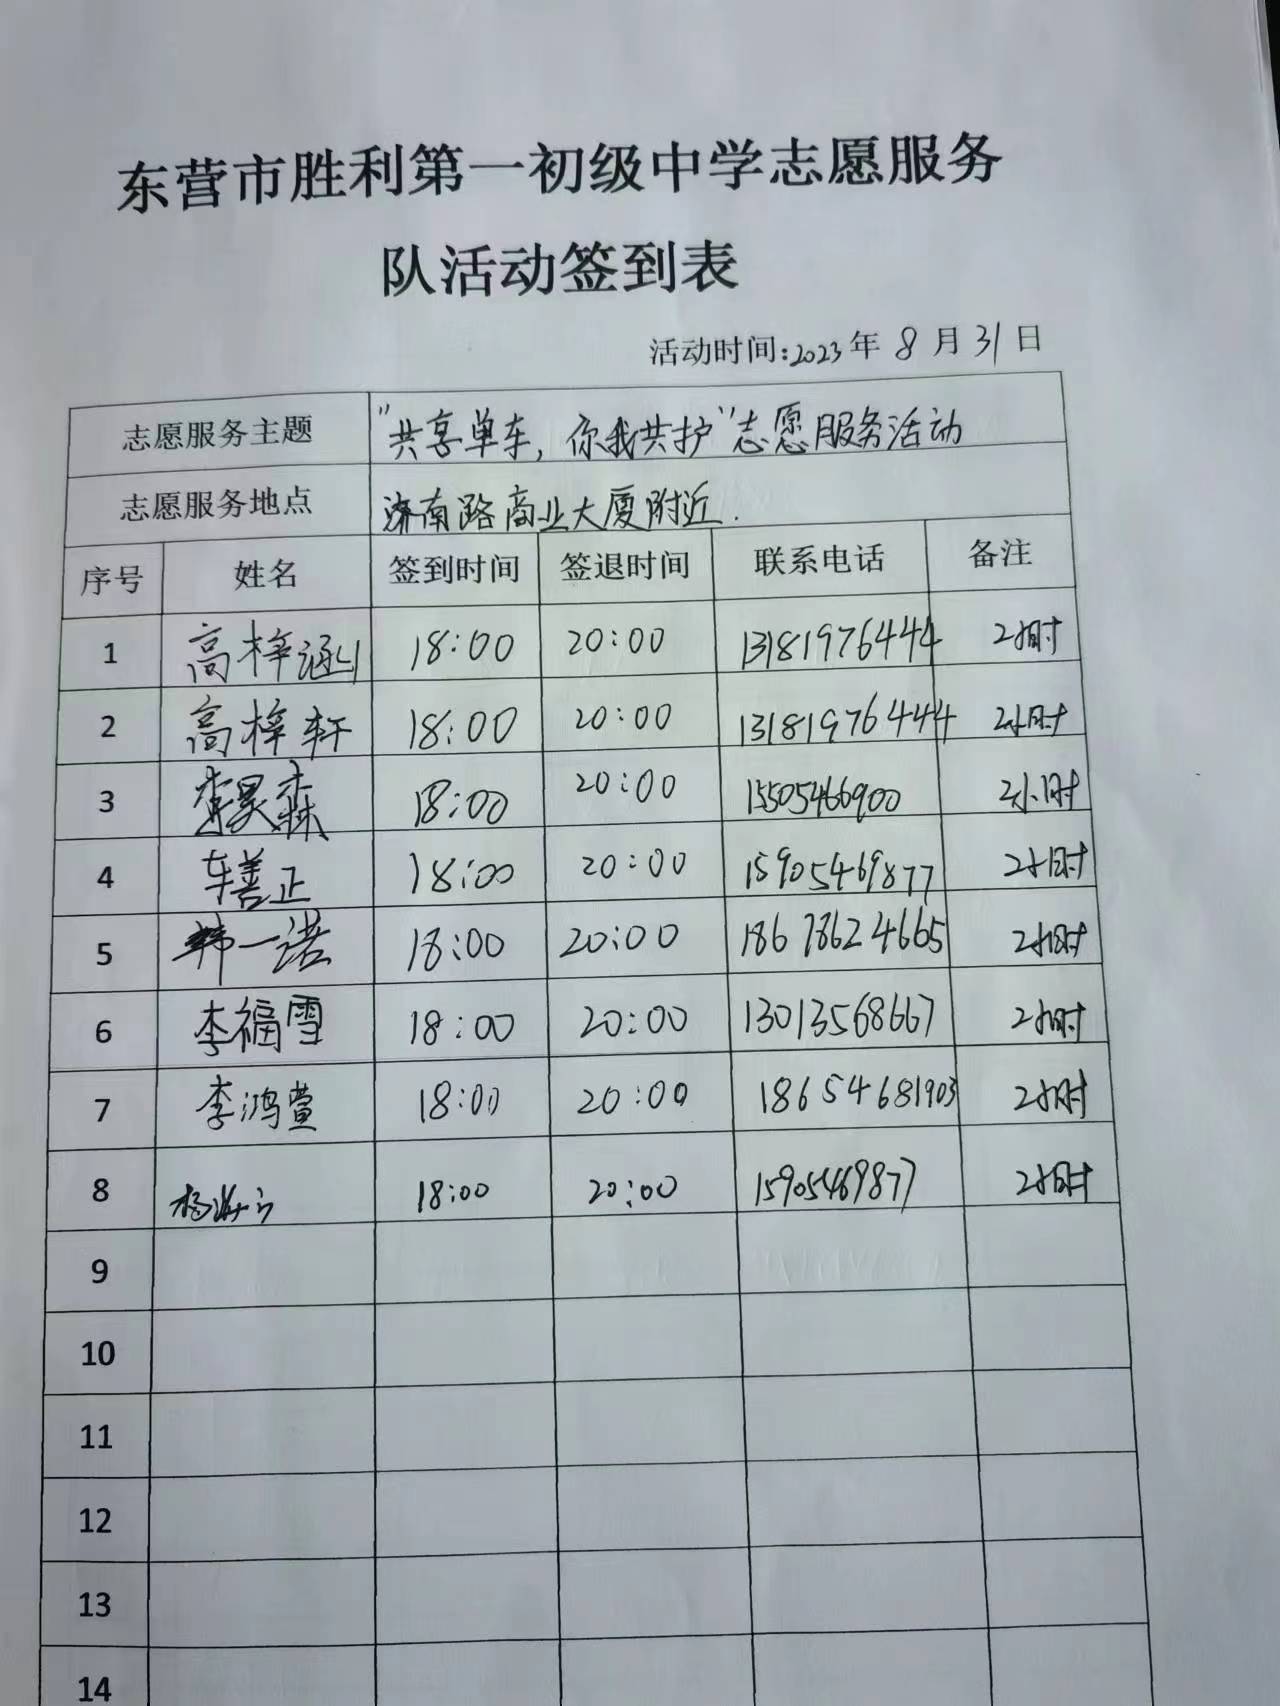 东营市胜利第一初级中学志愿服务
队活动签到表
活动时间:2023年 8 月 31 日
志愿服务主题 "共享单车，你我共护"志愿服务活动
志愿服务地点 济南路商业大厦附近.
序号 姓名 签到时间 签退时间 联系电话 备注
1 高梓涵 18:00 20:00 13181976444 2小时
2 高梓轩 18:00 20:00 13181976444 2小时
3 李昊霖 18:00 20:00 15505466900 2小时
4 车善正 18:00 20:00 15905469877 2小时
5 韩一诺 18:00 20:00 18678624665 2小时
6 李福雪 18:00 20:00 13013568667 2小时
7 李鸿萱 18:00 20:00 18654681903 2小时
8 18:00 20:00 15905469877 2小时
9
10
11
12
13
14